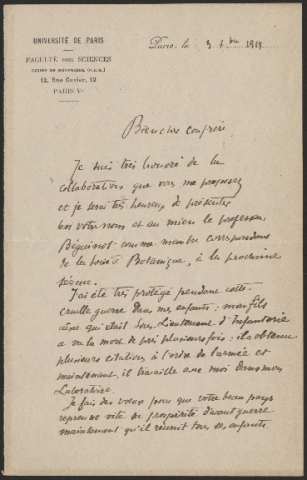 UNIVERSITÉ DE PARIS
FACULTÉ DES SCIENCES
COURS DE BOTANIQUE (P.C.N.)
12, Rue Cuvier, 12
PARIS-Vᵉ
Paris, le
Bien cher confrère
Je suis très honoré de la
collaboration que vous me proposez
et je serai très heureux de présenter
en votre nom et au mien le professeur
Béguinot comme membre correspondant
de la Société Botanique, à la prochaine
séance.
J'ai été très protégé pendant cette
cruelle guerre dans mes enfants : mon fils
aîné qui était Sous-Lieutenant d'Infanterie
a vu la mort de près plusieurs fois : il a obtenu
plusieurs citations à l'ordre de l'armée et
maintenant il travaille avec moi dans mon
Laboratoire.
Je fais des vœux pour que votre beau pays
reprenne vite sa prospérité d'avant guerre
maintenant qu'il réunit tous ses enfants